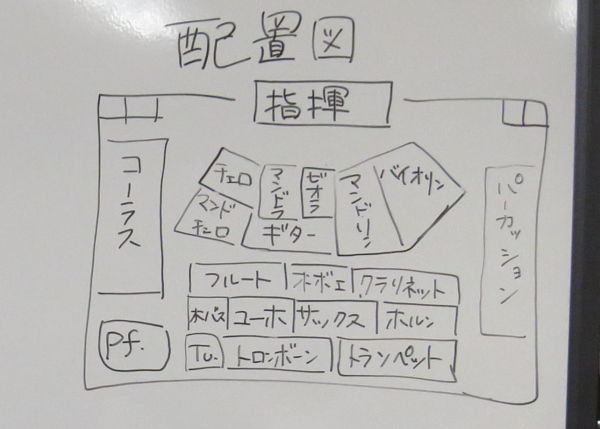 配置図
指揮
コーラス
チェロ
マンドラ
ビオラ
マンドリン
バイオリン
パーカッション
マンド
チェロ
ギター
フルート
オーボエ
クラリネット
木バス
ユーホ
サックス
ホルン
pf.
Tu.
トロンボーン
トランペット